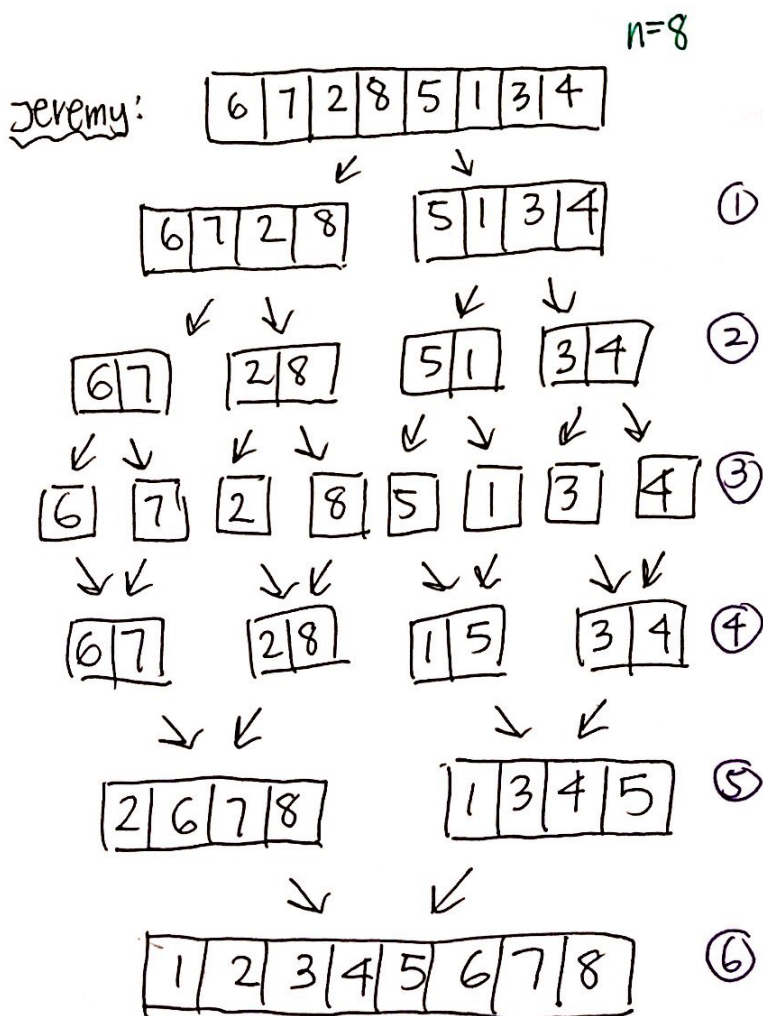 n=8
Jeremy: 6 7 2 8 5 1 3 4
6 7 2 8 5 1 3 4 ①
6 7 2 8 5 1 3 4 ②
6 7 2 8 5 1 3 4 ③
6 7 2 8 1 5 3 4 ④
2 6 7 8 1 3 4 5 ⑤
1 2 3 4 5 6 7 8 ⑥